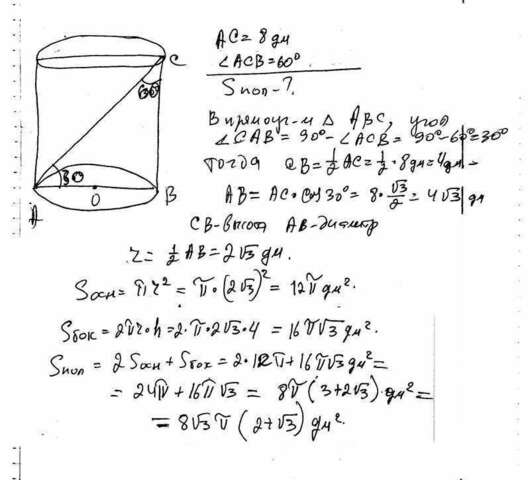 AC = 8 дм
∠ACB = 60°
Sпол - ?
C
60°
30
A
O
B
В прямоуг-м △ ABC, угол
∠CAB = 90° - ∠ACB = 90° - 60° = 30°
тогда CB = 1/2 AC = 1/2 · 8 дм = 4 дм -
AB = AC · cos 30° = 8 · √3/2 = 4√3 дм
CB - высота AB - диаметр
r = 1/2 AB = 2√3 дм.
Sосн = πr² = π · (2√3)² = 12π дм².
Sбок = 2πr · h = 2 · π · 2√3 · 4 = 16π√3 дм².
Sпол = 2 Sосн + Sбок = 2 · 12π + 16π√3 дм² =
= 24π + 16π√3 = 8π (3 + 2√3) · дм² =
= 8√3 π (2 + √3) дм².